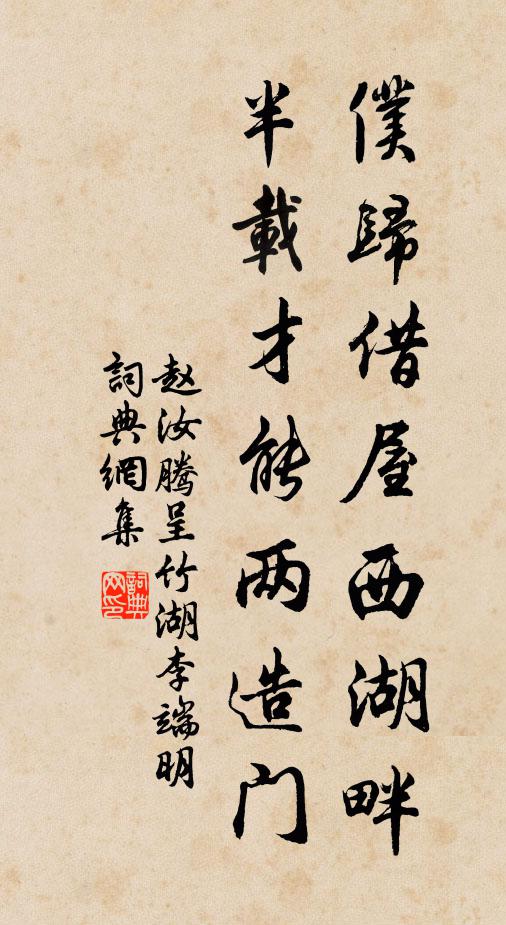 僕歸借屋西湖畔
半載才能两造门
赵汝腾呈竹湖李端明
詞典網集
詞典网印